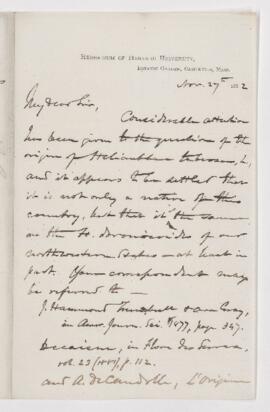 HERBARIUM OF HARVARD UNIVERSITY,
BOTANIC GARDEN, CAMBRIDGE, MASS.
Nov. 27th 1882
My dear Sir,
Considerable attention
has been given to the question of the
origin of Helianthus tuberosus, L,
and it appears to be settled that
it is not only a native of this
country, but that it is the same
as the H. doronicoides of our
northwestern States – at least in
part. Your correspondent may
be referred to –
J. Hammond Trumbull & Asa Gray,
in Amer. Journ. Sci. 1877, page 347.
Decaisne, in Flore des Serres
vol. 23 (1881) p. 112.
and A. DeCandolle, L'Origine